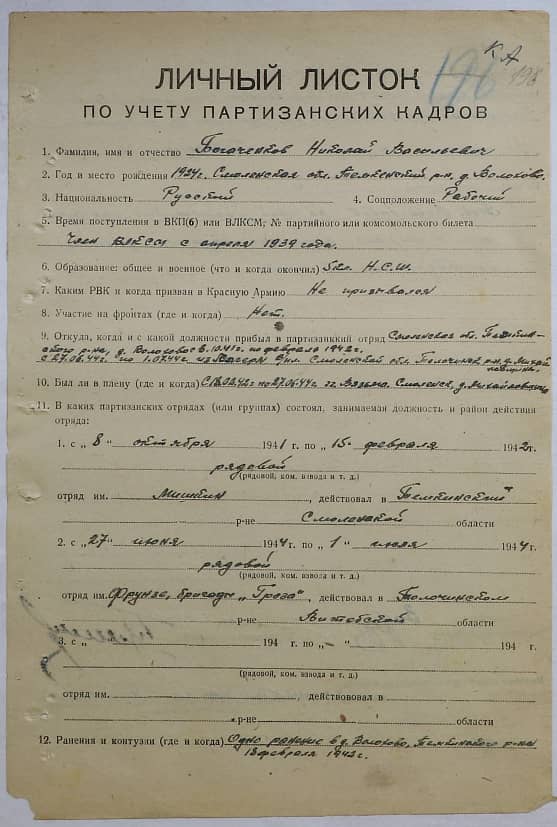 КА
196 198
ЛИЧНЫЙ ЛИСТОК
ПО УЧЕТУ ПАРТИЗАНСКИХ КАДРОВ
1. Фамилия, имя и отчество Богаченков Николай Васильевич
2. Год и место рождения 1924г. Смоленская обл. Темкенский р-н, д. Волоково.
3. Национальность Русский 4. Соцположение Рабочий
5. Время поступления в ВКП(б) или ВЛКСМ, № партийного или комсомольского билета
Член ВЛКСМ с апреля 1939 года.
6. Образование: общее и военное (что и когда окончил) 5 кл. Н.С.Ш.
7. Каким РВК и когда призван в Красную Армию Не призывался
8. Участие на фронтах (где и когда) Нет.
9. Откуда, когда и с какой должности прибыл в партизанкий отряд Смоленская об.
ского р-на, д. Волоково 8.10.41г. по февраль 1942г.
с 27.06.44г. по 1.07.44г. из Смоленской обл. Толочинск. р-н, д. Михай
10. Был ли в плену (где и когда) по 27.06.44г. гг. Вязьма, Смоленск, д. Михайловщина
11. В каких партизанских отрядах (или группах) состоял, занимаемая должность и район действия
отряда:
1. с „8" октября 1941 г. по „15" февраля 1942г.
рядовой
(рядовой, ком. взвода и т. д.)
отряд им. Мишкин, действовал в Темкинский
р-не Смоленской области
2. с „27" июня 1944 г. по „1" июля 1944г.
рядовой
(рядовой, ком. взвода и т. д.)
отряд им. Фрунзе, бригады „Гроза", действовал в Толочинском
р-не Витебской области
3. с „ 194 г. по „ " 194 г.
(рядовой, ком. взвода и т. д.)
отряд им. , действововал в
р-не области
12. Ранения и контузии (где и когда) Одно ранение в д. Волоково, Темкинского р-на
18 февраля 1942г.